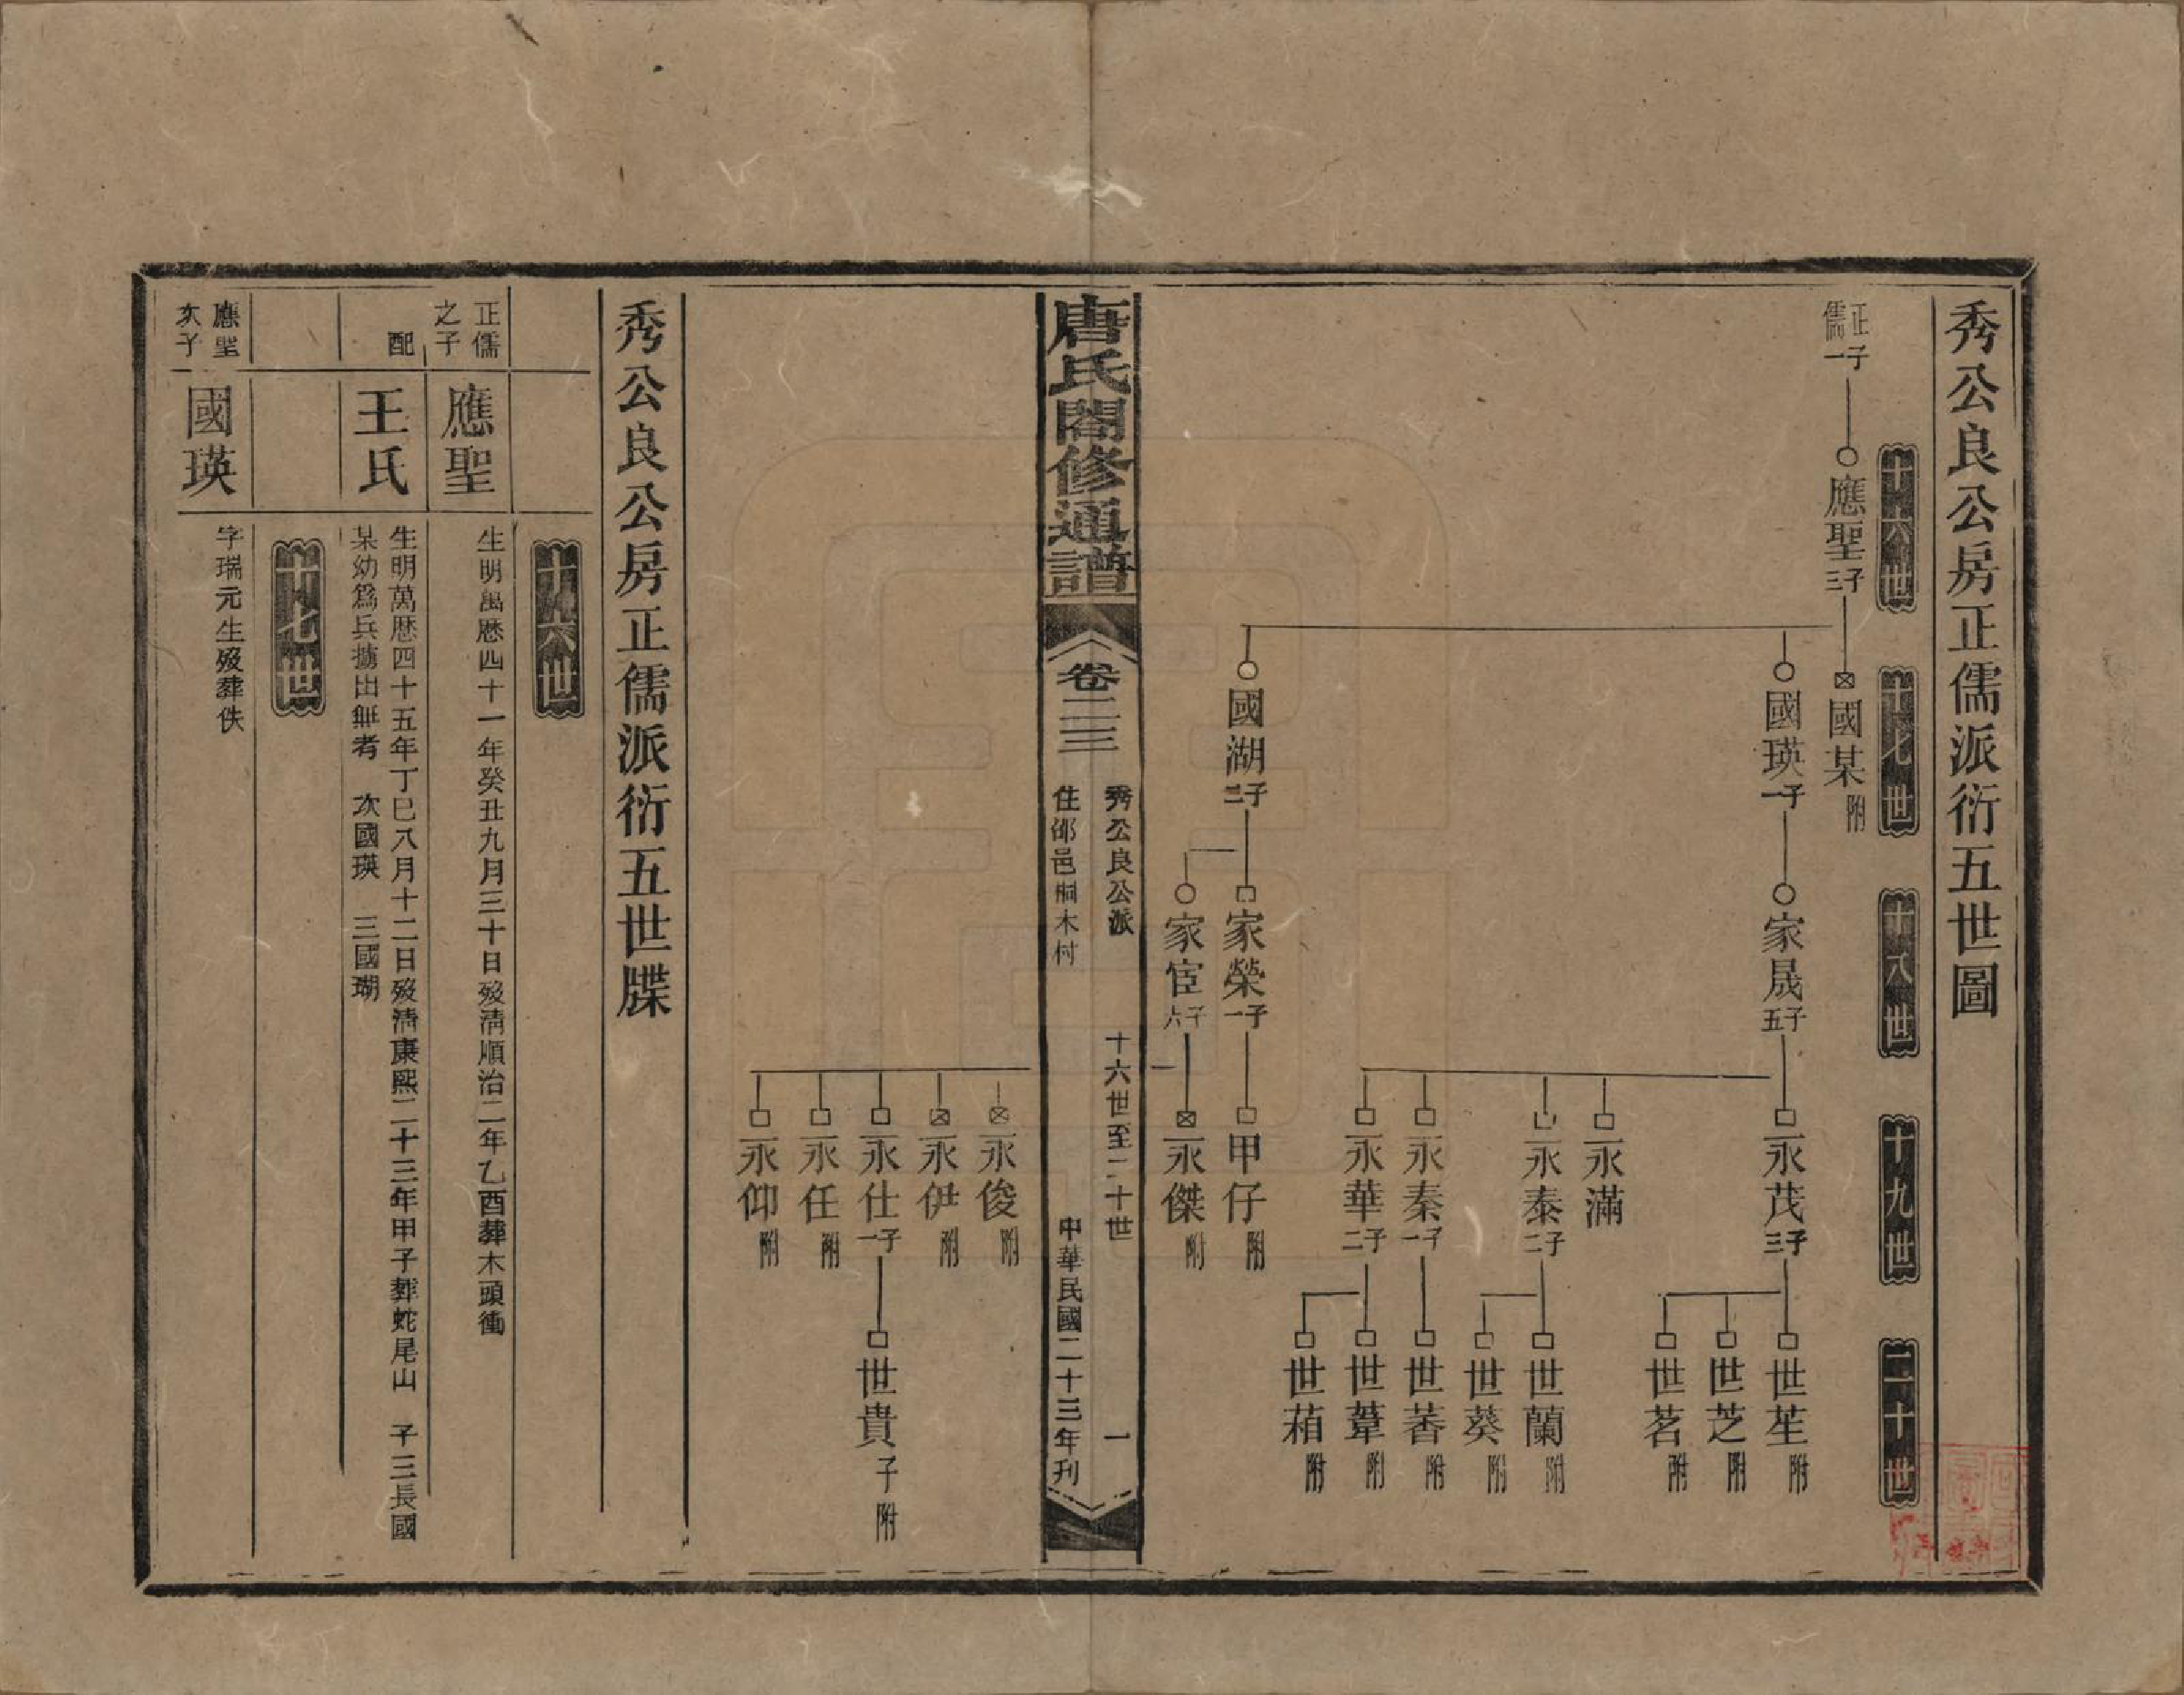 秀公良公房正儒派衍五世圖
十六世
十七世
十八世
十九世
二十世
正儒一子
應聖三子
國某附
國瑛一子
家晟五子
永茂三子
世苼附
世芝附
世茗附
永滿
永泰二子
世蘭附
世葵附
永秦一子
世萫附
永華二子
世葦附
世萡附
國湖二子
家榮一子
甲仔附
家宦六子
永傑附
唐氏閤修通譜
卷二三
秀公良公派
住邵邑桐木村
十六世至二十世
一
中華民國二十三年刊
永俊附
永伊附
永仕一子
世貴子附
永任附
永仰附
秀公良公房正儒派衍五世牒
十六世
正儒之子
應聖
生明萬厯四十一年癸丑九月三十日歿淸順治二年乙酉葬木頭衝
配
王氏
生明萬厯四十五年丁巳八月十二日歿淸康熙二十三年甲子葬蛇尾山 子三長國
某幼爲兵擄出無考 次國瑛 三國瑚
十七世
應聖次子
國瑛
字瑞元生歿葬佚